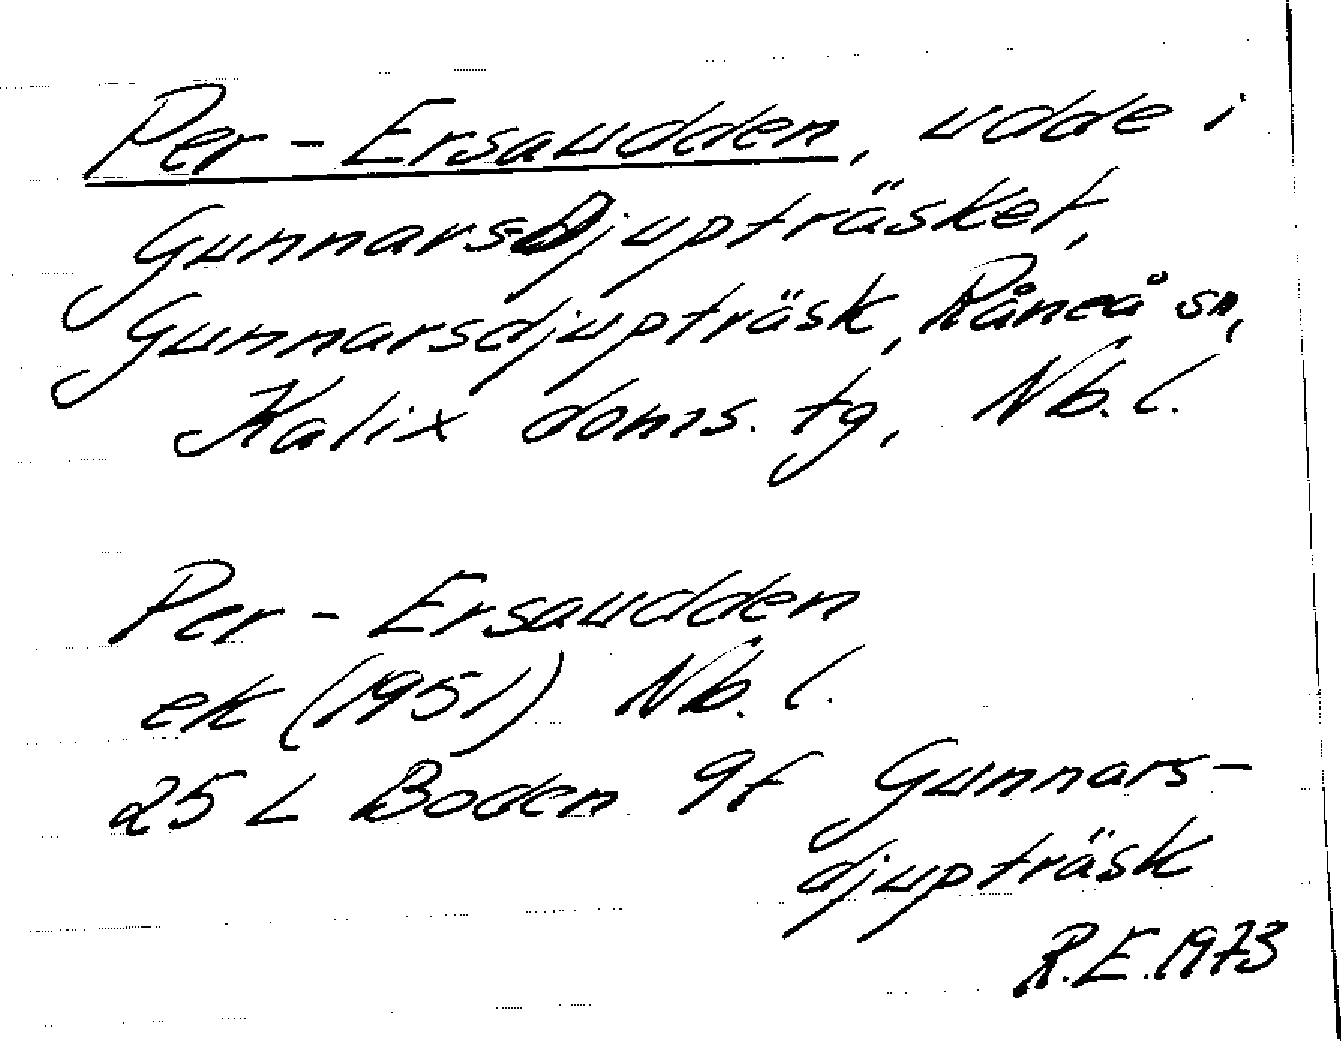 Per-Ersaudden, udde i
Gunnarsdjupträsket,
Gunnarsdjupträsk, Råneå sn,
Kalix doms. tg, Nb. l.
Per-Ersaudden
ek (1951) Nb. l.
25 L Boden 9f Gunnars-
djupträsk
R.E. 1973